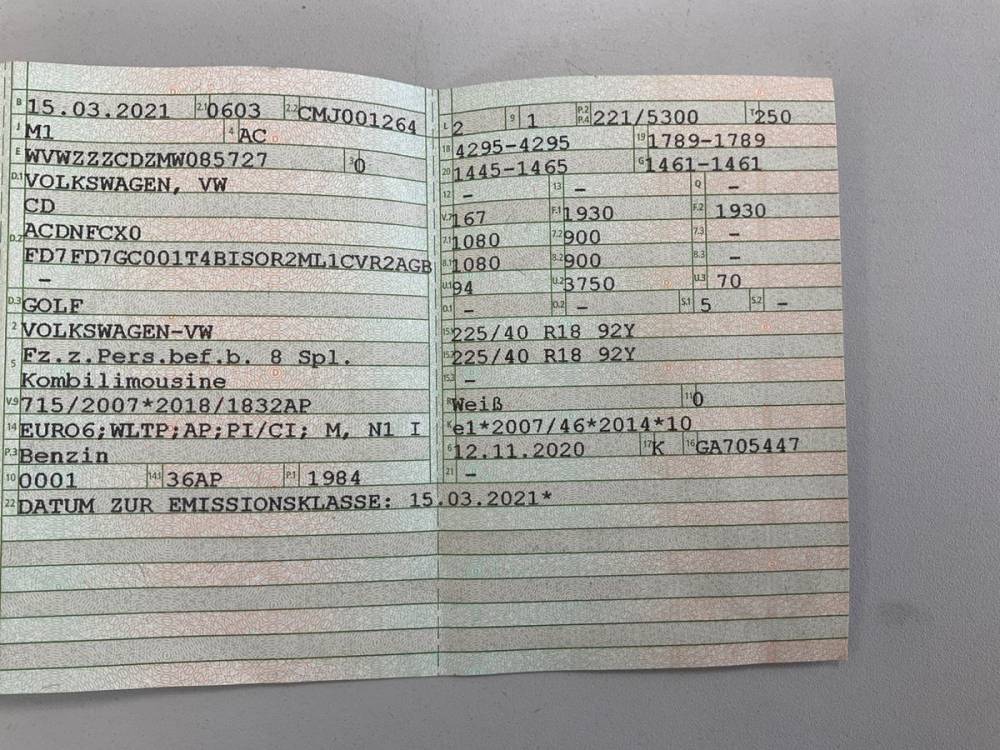 B 15.03.2021 2.1 0603 2.2 CMJ001264
J M1 4 AC
E WVWZZZCDZMW085727 3 0
D.1 VOLKSWAGEN, VW
CD
D.2 ACDNFCX0
FD7FD7GC001T4BISOR2ML1CVR2AGB
–
D.3 GOLF
2 VOLKSWAGEN-VW
5 Fz.z.Pers.bef.b. 8 Spl.
Kombilimousine
V.9 715/2007*2018/1832AP
14 EURO6;WLTP;AP;PI/CI; M, N1 I
P.3 Benzin
10 0001 14.1 36AP P.1 1984
22 DATUM ZUR EMISSIONSKLASSE: 15.03.2021*
L 2 9 1 P.2 P.4 221/5300 T 250
18 4295-4295 19 1789-1789
20 1445-1465 G 1461-1461
12 – 13 – Q –
V.7 167 F.1 1930 F.2 1930
7.1 1080 7.2 900 7.3 –
8.1 1080 8.2 900 8.3 –
U.1 94 U.2 3750 U.3 70
O.1 – O.2 – S.1 5 S.2 –
15.1 225/40 R18 92Y
15.2 225/40 R18 92Y
15.3 –
R Weiß 11 0
K e1*2007/46*2014*10
6 12.11.2020 17 K 16 GA705447
21 –